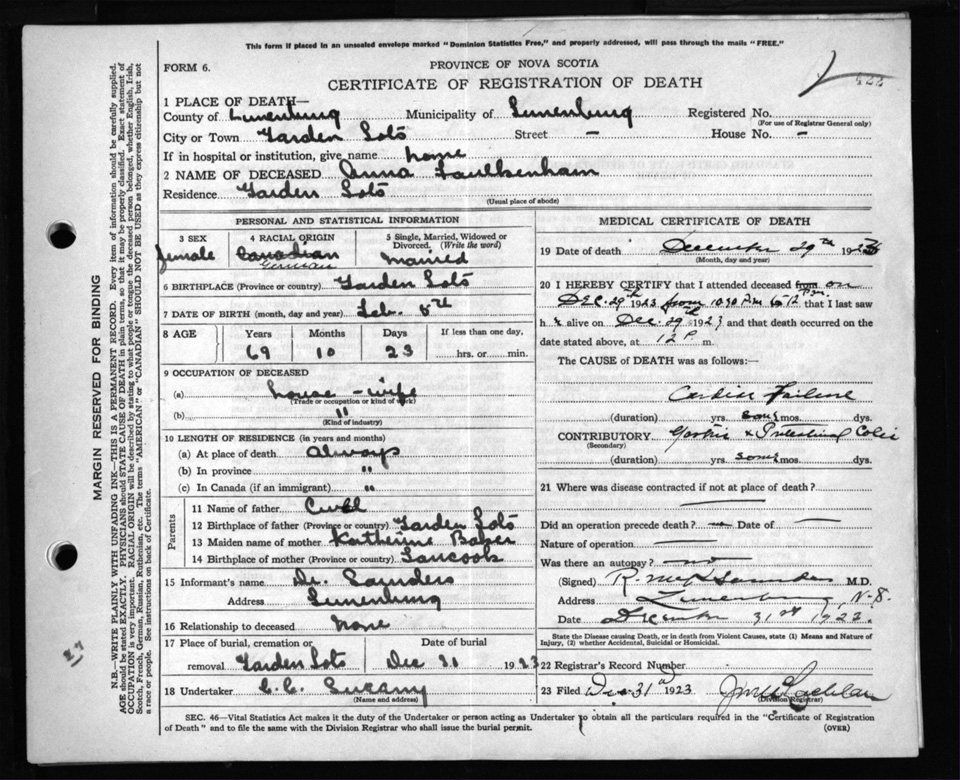 This form if placed in an unsealed envelope marked "Dominion Statistics Free," and properly addressed, will pass through the mails "FREE."
FORM 6.
PROVINCE OF NOVA SCOTIA
422
CERTIFICATE OF REGISTRATION OF DEATH
1 PLACE OF DEATH—
County of Lunenburg Municipality of Lunenburg Registered No.
(For use of Registrar General only)
City or Town Garden Lots Street – House No. –
If in hospital or institution, give name home
2 NAME OF DECEASED Anna Faulkenham
Residence Garden Lots
(Usual place of abode)
PERSONAL AND STATISTICAL INFORMATION
3 SEX 4 RACIAL ORIGIN 5 Single, Married, Widowed or Divorced. (Write the word)
female Canadian German married
6 BIRTHPLACE (Province or country) Garden Lots
7 DATE OF BIRTH (month, day and year) Feb. 5th
8 AGE Years Months Days If less than one day,
69 10 23 hrs. or min.
9 OCCUPATION OF DECEASED
(a) house-wife
(Trade or occupation or kind of work)
(b) "
(Kind of industry)
10 LENGTH OF RESIDENCE (in years and months)
(a) At place of death always
(b) In province "
(c) In Canada (if an immigrant) "
Parents
11 Name of father
12 Birthplace of father (Province or country) Garden Lots
13 Maiden name of mother Katherine Baker
14 Birthplace of mother (Province or country) Tancook
15 Informant's name Dr. Saunders
Address Lunenburg
16 Relationship to deceased none
17 Place of burial, cremation or removal Garden Lots
Date of burial Dec 31 1923
18 Undertaker C.C.
(Name and address)
MEDICAL CERTIFICATE OF DEATH
19 Date of death December 29th 1923
(Month, day and year)
20 I HEREBY CERTIFY that I attended deceased from on
Dec. 29th 1923 from 10.30 P.m. to 12 P.m. that I last saw
h alive on Dec 29th 1923 and that death occurred on the
date stated above, at 12 P. m.
The CAUSE of DEATH was as follows:—
Cardiac Failure
(duration) yrs. mos. dys.
CONTRIBUTORY Gastric & Intestinal Colic
(Secondary)
(duration) yrs. mos. dys.
21 Where was disease contracted if not at place of death?
Did an operation precede death? no Date of —
Nature of operation —
Was there an autopsy? no
(Signed) Saunders M.D.
Address Lunenburg N.S.
Date December 31st 1923.
State the Disease causing Death, or in death from Violent Causes, state (1) Means and Nature of Injury, (2) whether Accidental, Suicidal or Homicidal.
22 Registrar's Record Number
23 Filed Dec 31 1923
(Division Registrar)
SEC. 46—Vital Statistics Act makes it the duty of the Undertaker or person acting as Undertaker to obtain all the particulars required in the "Certificate of Registration
of Death" and to file the same with the Division Registrar who shall issue the burial permit.
(OVER)
MARGIN RESERVED FOR BINDING
N.B.—WRITE PLAINLY WITH UNFADING INK—THIS IS A PERMANENT RECORD. Every item of information should be carefully supplied.
AGE should be stated EXACTLY. PHYSICIANS should STATE CAUSE OF DEATH in plain terms, so that it may be properly classified. Exact statement of
OCCUPATION is very important. RACIAL ORIGIN will be described by stating to what people or tongue the deceased person belonged, whether English, Irish,
Scotch, French, German, Russian, Ruthenian, etc. The terms "AMERICAN" or "CANADIAN" SHOULD NOT BE USED as they express citizenship but not
a race or people. See instructions on back of Certificate.